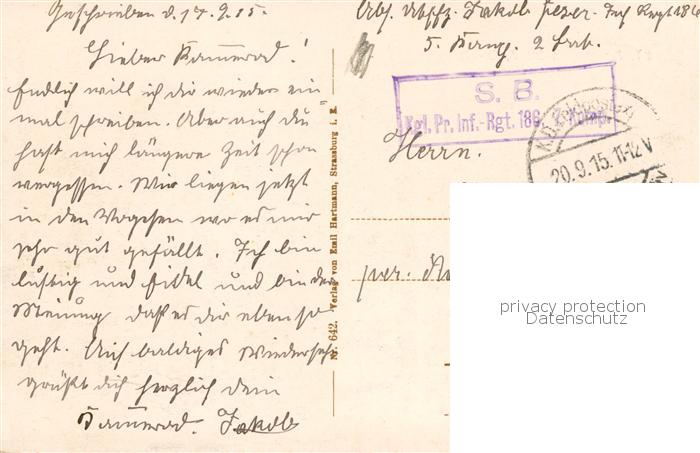 Geschrieben d. 17.9.15.
Lieber Kammerad!
Endlich will ich dir wieder ein
mal schreiben. Aber auch du
hast mich längere Zeit schon
vergessen. Wir liegen jetzt
in den Vogesen wo es mir
sehr gut gefällt. Ich bin
lustig und fidel und bin der
Meinung daß es dir eben so
geht. Auf baldiges Wiederseh
grüßt dich herzlich dein
Kammerad. Jakob
Nr. 642. Verlag von Emil Hartmann, Strassburg i. E.
Abs. Jakob Inf. Regt 186
5. Komp. 2 Bat.
S. B.
Kgl. Pr. Inf.-Rgt. 186. Komp.
20.9.15.11-12V
Herrn.
per.
privacy protection
Datenschutz